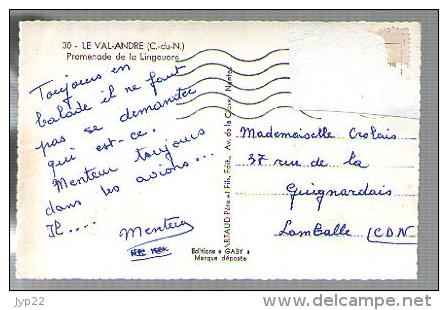 30 - LE VAL-ANDRE (C.-du-N.)
Promenade de la Linguare
Toujours en
balade il ne faut
pas se demander
qui est-ce.
Menteur toujours
dans les avions...
Il....
Menteur
Editions « GABY »
Marque déposée
ARTAUD Père et Fils, Édit., Av. de la Close, Nantes
Mademoiselle Crolais
37 rue de la
Guignardais
Lamballe (CDN
jyp22
http://www.delcampe.net